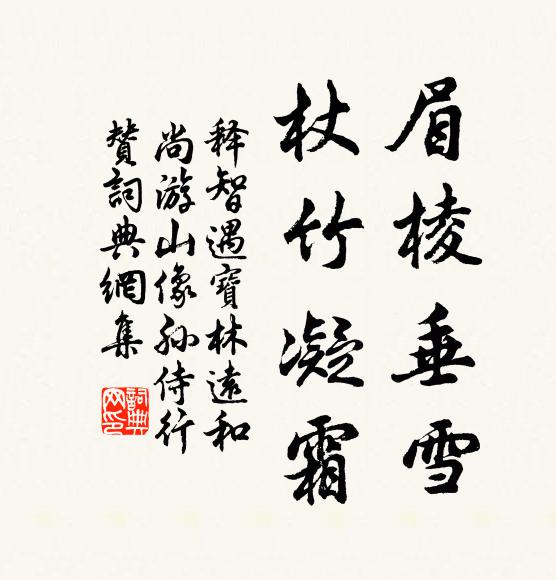 眉棱垂雪
杖竹凝霜
释智遇寶林遠和
尚游山像孙侍行
赞詞典網集
詞典
网印